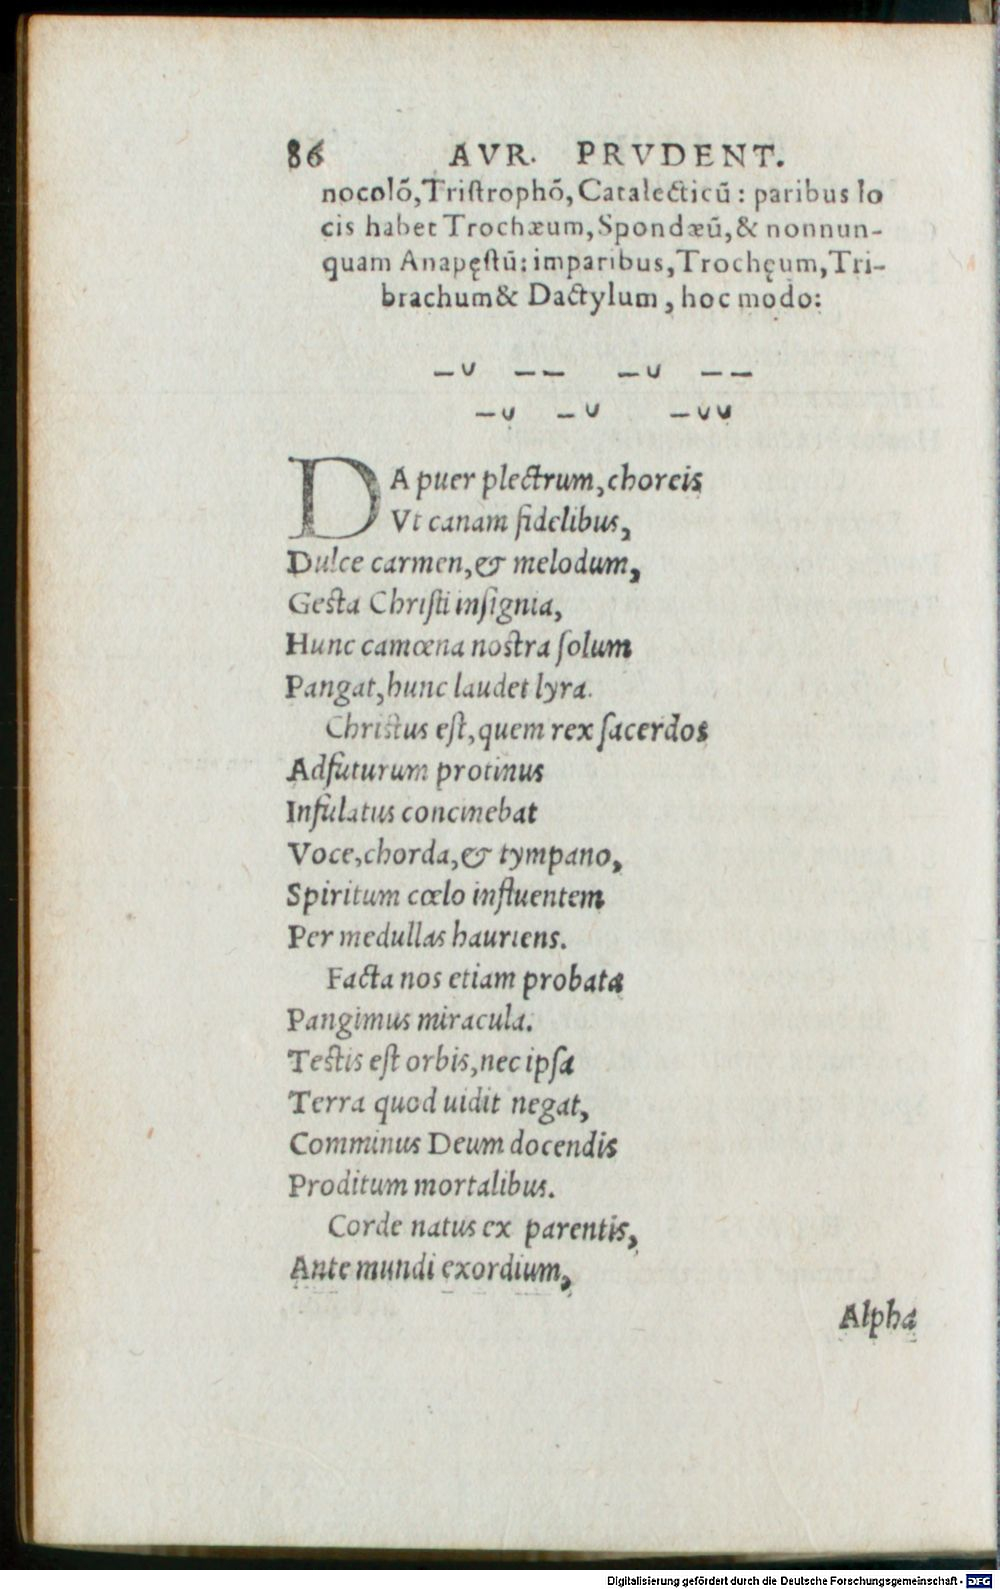 86 AVR. PRVDENT.
nocolō, Tristrophō, Catalecticū: paribus lo
cis habet Trochæum, Spondæū, & nonnun-
quam Anapęstū: imparibus, Trochęum, Tri-
brachum & Dactylum, hoc modo:
–∪ –– –∪ ––
–∪ –∪ –∪∪
DA puer plectrum, choreis
Vt canam fidelibus,
Dulce carmen, & melodum,
Gesta Christi insignia,
Hunc camœna nostra solum
Pangat, hunc laudet lyra.
Christus est, quem rex sacerdos
Adfuturum protinus
Infulatus concinebat
Voce, chorda, & tympano,
Spiritum cœlo influentem
Per medullas hauriens.
Facta nos etiam probata
Pangimus miracula.
Testis est orbis, nec ipsa
Terra quod uidit negat,
Comminus Deum docendis
Proditum mortalibus.
Corde natus ex parentis,
Ante mundi exordium,
Alpha
Digitalisierung gefördert durch die Deutsche Forschungsgemeinschaft - DFG